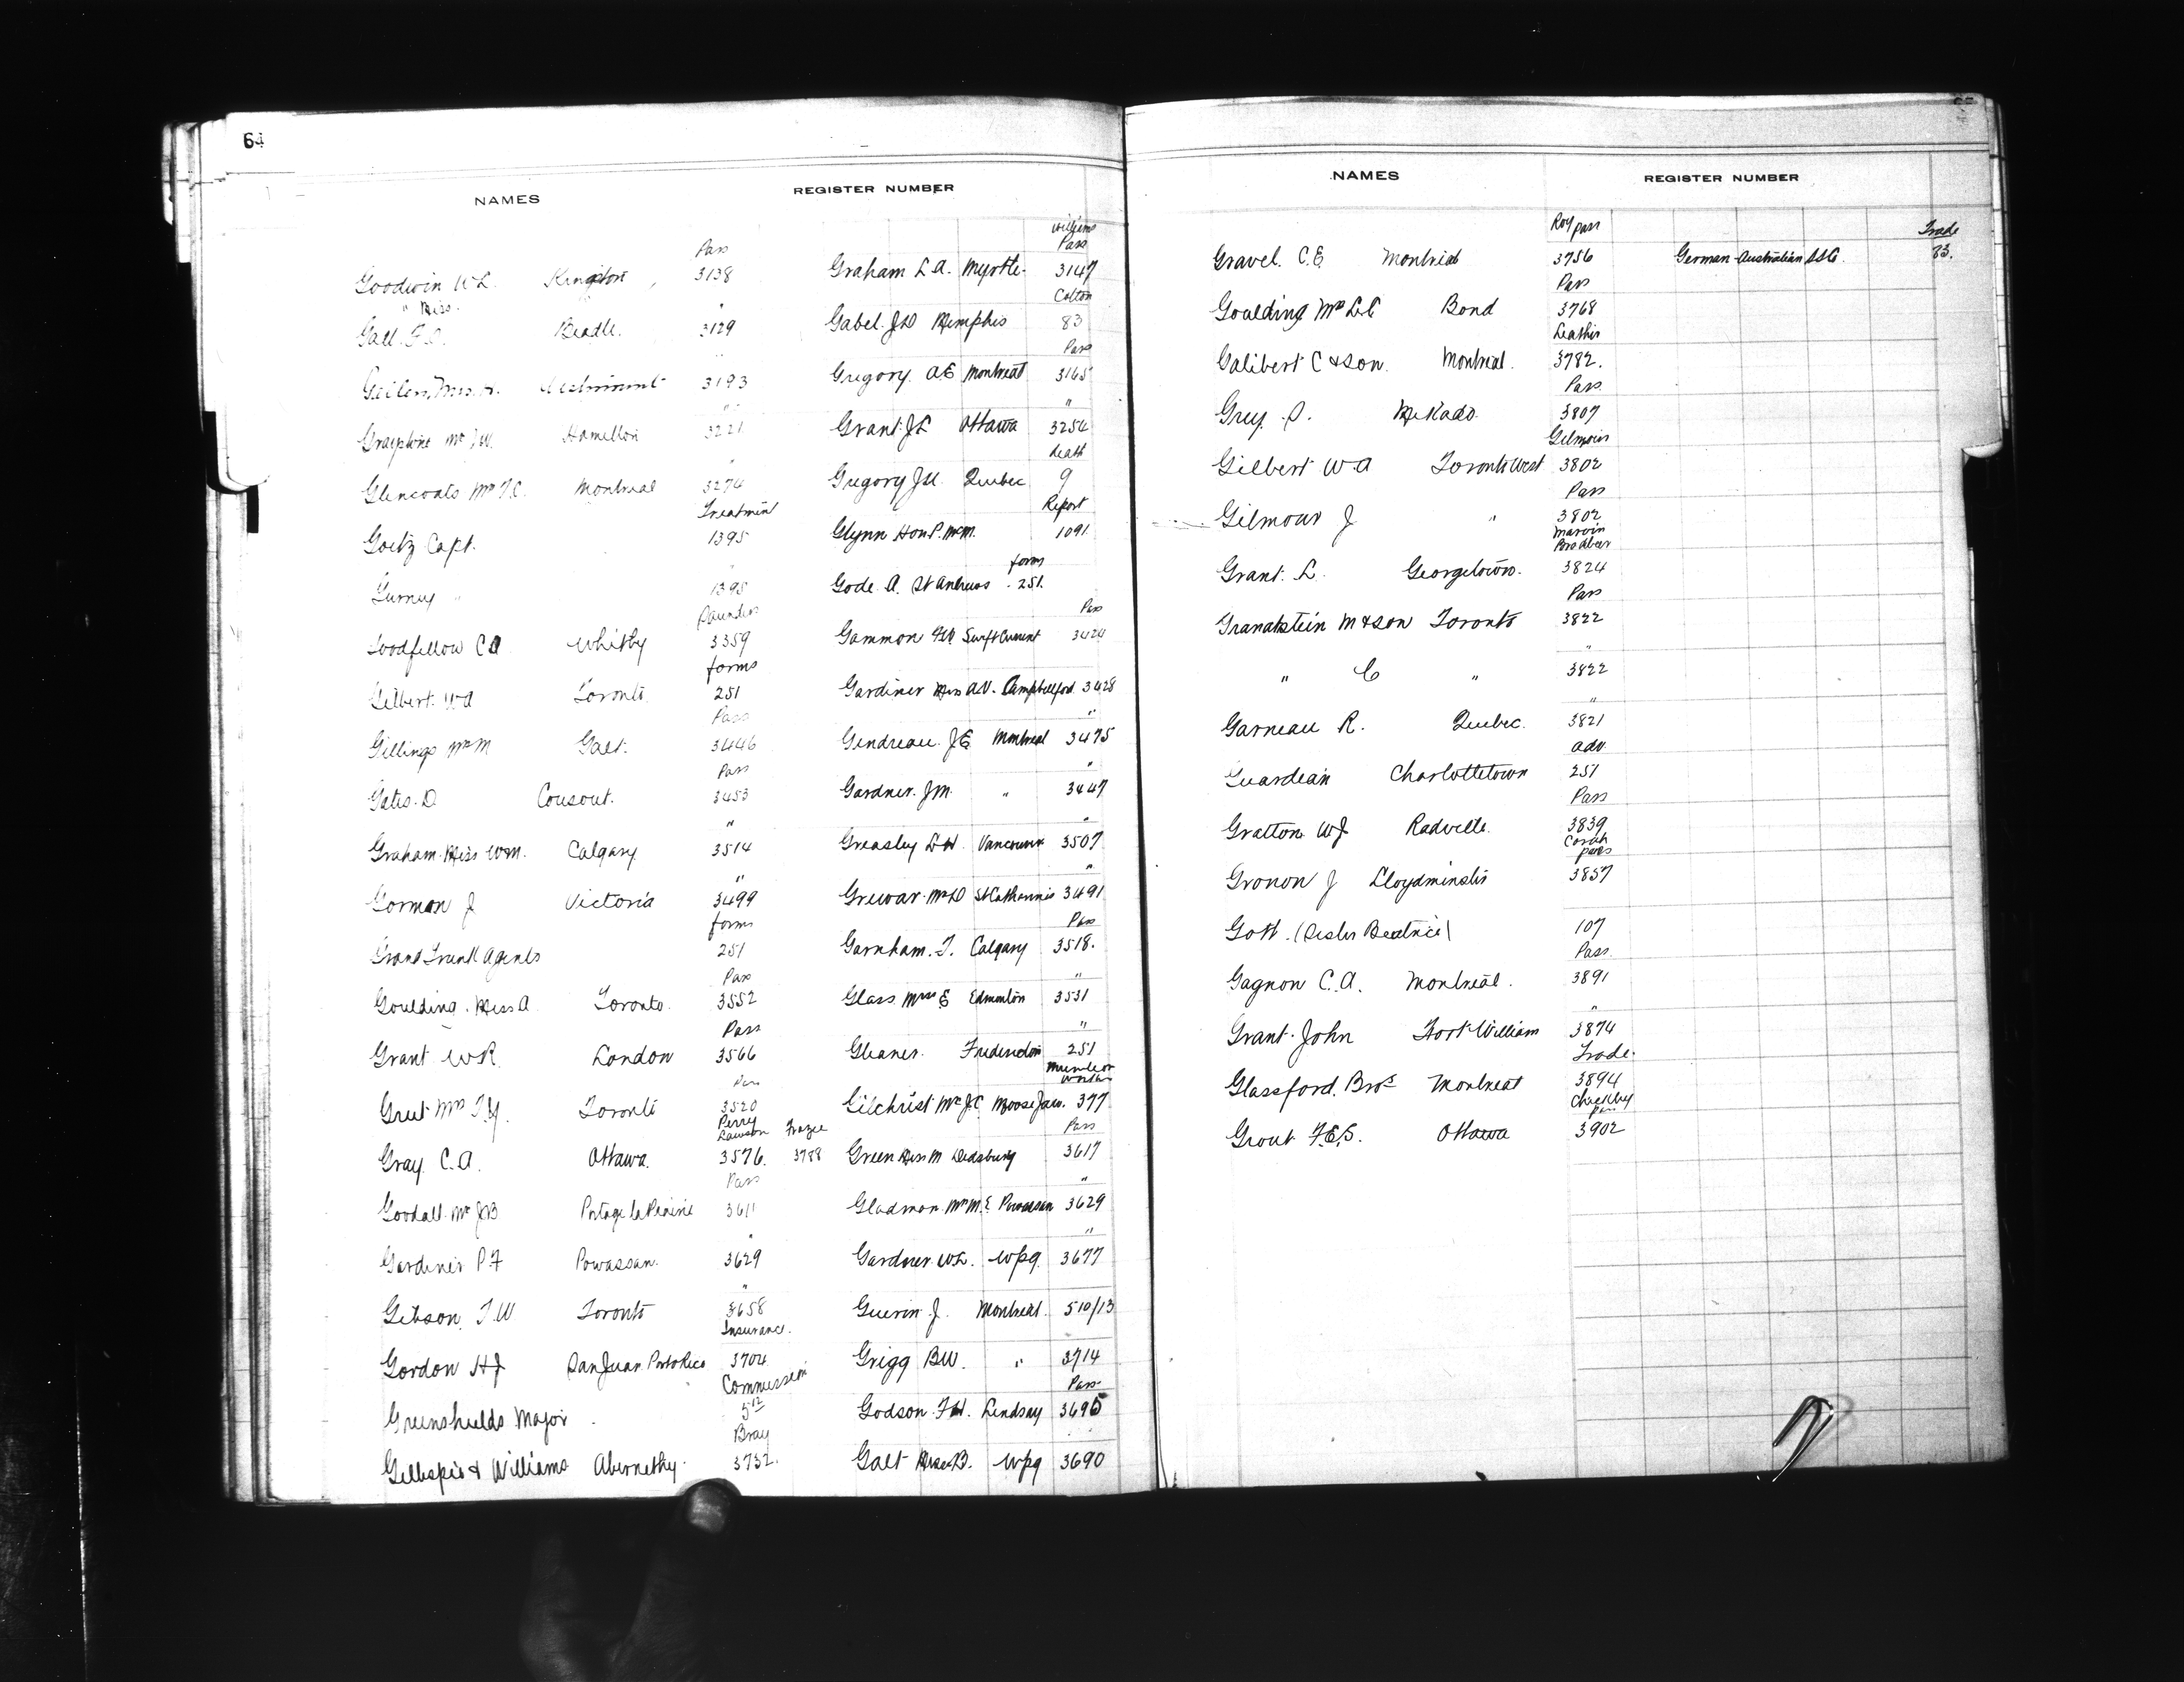 64
NAMES REGISTER NUMBER
Pass
Goodwin W L. Kingston 3138
" Miss "
Gall. F. C. Beadle. 3129
3193
Hamilton 3221
"
Glencoats Mrs T. C. Montreal 3274
Treatment
Goetz Capt. 1395
"
Gurney " 1395
Saunders
Goodfellow C A Whitby 3359
forms
Gilbert W A Toronto 251
Pass
Gillings Mrs M Galt. 3446
Pass
Gates. D Consout. 3453
"
Graham. Miss W M. Calgary 3514
"
Gorman J Victoria 3499
forms
Grand Trunk Agents 251
Pass
Goulding. Miss A Toronto. 3552
Pass
Grant W R London 3566
Pass
Toronto 3520
Perry
Lawson Frazee
Gray C. A. Ottawa. 3576. 3788
Pass
Goodall. Mr J B Portage la Prairie 3611
"
Gardiner P. F Powassan. 3629
"
Gibson, T. W Toronto 3658
Insurance.
Gordon H J San Juan Porto Rico 3704
Commission
Greenshields Major 512
Bray
Gillespie & Williams Abernethy. 3732.
Williams
Pass
Graham L A. Myrtle. 3147
Colton
Gabel. J D Memphis 83
Pass
Gregory. A E Montreal 3165
"
Grant. J L Ottawa 3254
death
Gregory J U. Quebec 9
Report
Glynn Hon P. McM. 1091
forms
Gode A. St Andrews 251.
Pass
Gammon Swift Current 3424
Gardiner Miss A. V. Campbellford 3428
"
Gendreau. J E Montreal 3475
"
Gardner. J M. " 3447
"
Greasley L H. Vancouver 3507
"
Grewar. Mrs D St Catharines 3491
Pass
Garnham. T. Calgary 3518.
"
Glass Mrs E Edmonton 3531
"
Gleaner. Fredericton 251
Munition
workers
Gilchrist Mr J. C. Moose Jaw. 377
Pass
Green Miss M Didsbury 3617
"
Gladman Mrs M. E Powassan 3629
"
Gardner. W L. Wpg. 3677
Guerin J. Montreal. 510/13
Grigg B W. " 3714
Pass
Godson. F W. Lindsay 3695
Galt Miss B. Wpg 3690
NAMES REGISTER NUMBER
Roy pass Trade
Gravel. C. E Montreal 3756 German-Australian SSC. 23.
Pass
Goulding Mrs L C Bond 3768
Leather
Galibert C & Son. Montreal. 3782.
Pass
Grey. S. Mikado. 3807
Gilmour
Gilbert W A Toronto West 3802
Pass
Gilmour J " 3802
Marvin
Grant. L. Georgetown. 3824
Pass
Granatstein M & Son Toronto 3822
"
" C " 3822
"
Garneau R. Quebec. 3821
adv.
Guardian Charlottetown 251
Pass
Gratton W J Radville. 3839
pass
Gronon J Lloydminster 3857
Gott. (Sister Beatrice) 107
Pass.
Gagnon C. A. Montreal. 3891
"
Grant. John Fort William 3874
Trade.
Glassford. Bros Montreal 3894
Checkley
pass
Grout F. E. S. Ottawa 3902